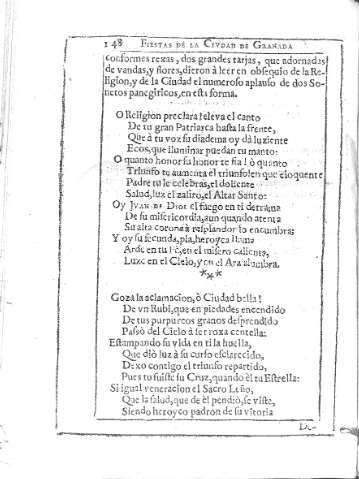 148 FIESTAS DE LA CIVDAD DE GRANADA
conformes rexas, dos grandes tarjas, que adornadas
de vandas, y flores, dieron à leer en obsequio de la Re-
ligion, y de la Ciudad el numeroso aplauso de dos So-
netos panegiricos, en esta forma.
O Religion preclara! eleva el canto
De tu gran Patriarca hasta la frente,
Que à tu voz su diadema oy dà luziente
Ecos, que iluminar puedan tu manto:
O quanto honor su honor te fia! ò quanto
Triunfo te aumenta el triunfo! en que eloquente
Padre tu le celebras, el doliente
Salud, luz el zafiro, el Altar Santo:
Oy JVAN DE Dios el fuego en ti derrama
De su misericordia, aun quando atenta
Su alta corona à resplandor lo encumbra:
Y oy su fecunda, pia, heroyca llama
Arde en tu Fè, en el misero calienta,
Luze en el Cielo, y en el Ara alumbra.
***
Goza la aclamacion, ò Ciudad bella!
De vn Rubi, que en piedades encendido
De tus purpureos granos desprendido
Passò del Cielo à ser roxa centella:
Estampando su vida en ti la huella,
Que diò luz à su curso esclarecido,
Dexo contigo el triunfo repartido,
Pues tu fuiste su Cruz, quando èl tu Estrella:
Si igual veneracion el Sacro Leño,
Que la salud, que de èl pendiò, se viste,
Siendo heroyco padron de su vitoria
De-